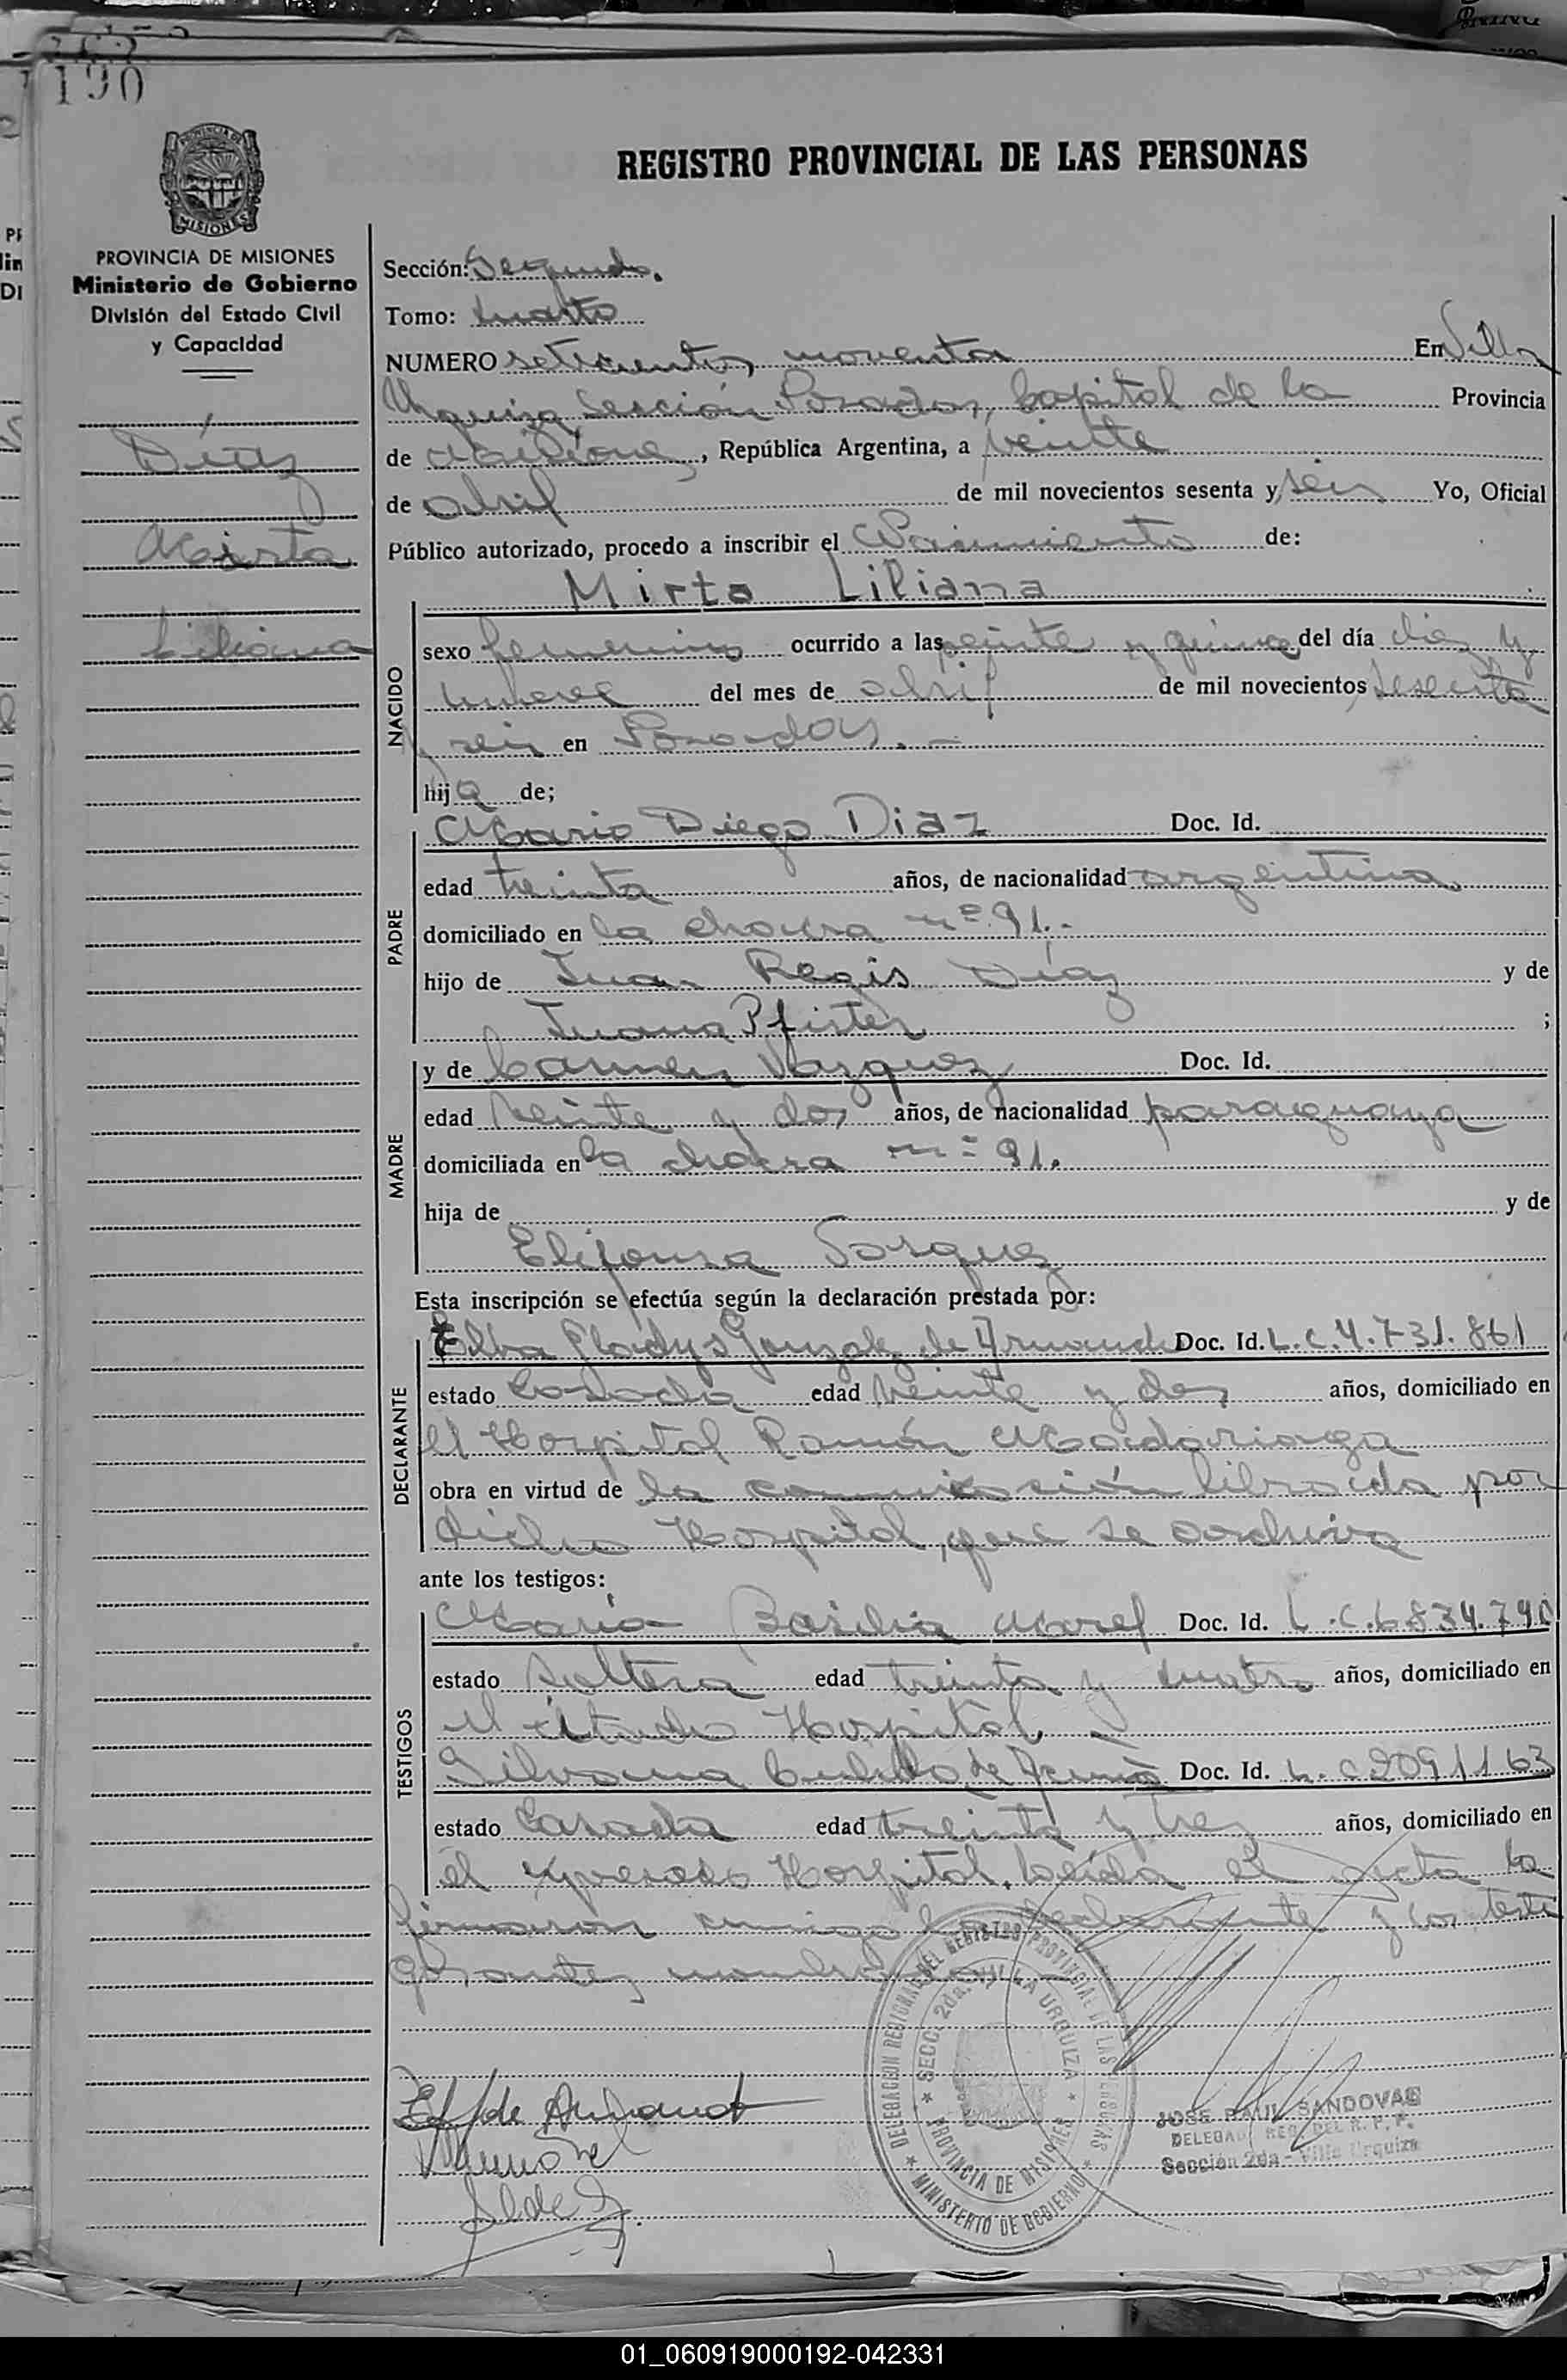 190
REGISTRO PROVINCIAL DE LAS PERSONAS
PROVINCIA DE MISIONES
Ministerio de Gobierno
División del Estado Civil
y Capacidad
Díaz
Mirta
Liliana
Sección: Segunda.
Tomo: cuarto
NUMERO setecientos noventa En Villa
Urquiza Sección Posadas, Capital de la Provincia
de Misiones, República Argentina, a veinte
de abril de mil novecientos sesenta y seis Yo, Oficial
Público autorizado, procedo a inscribir el Nacimiento de:
NACIDO
Mirta Liliana
sexo femenino ocurrido a las veinte y quince del día diez y
nueve del mes de abril de mil novecientos sesenta
y seis en Posadas.-
hija de;
PADRE
Mario Diego Diaz Doc. Id.
edad treinta años, de nacionalidad argentina
domiciliado en la chacra nº 91.-
hijo de Juan Regis Díaz y de
Juana Pfister ;
MADRE
y de Carmen Vazquez Doc. Id.
edad veinte y dos años, de nacionalidad paraguaya
domiciliada en la chacra nº 91.
hija de y de
Vasquez
Esta inscripción se efectúa según la declaración prestada por:
DECLARANTE
Elba Gladys Gonzalez de Doc. Id. L.C.4.731.861
estado Casada edad veinte y dos años, domiciliado en
el Hospital Ramón Madariaga
obra en virtud de la librada por
dicho Hospital, que se archiva
ante los testigos:
TESTIGOS
María Basilia Morel Doc. Id. L.C.6834.790
estado Soltera edad treinta y cuatro años, domiciliado en
el citado Hospital.
Silvana de Doc. Id. L.C2091163
estado Casada edad treinta y tres años, domiciliado en
el expresado Hospital. Leída el acta la
firmaron conmigo la declarante y los testi
gos antes
DELEGACION REGIONAL DEL REGISTRO PROVINCIAL DE LAS PERSONAS
SECC. 2da. VILLA URQUIZA
PROVINCIA DE MISIONES
MINISTERIO DE GOBIERNO
JOSE RAUL SANDOVAL
DELEGADO REG. DEL R. P. P.
Sección 2da - Villa Urquiza
01_060919000192-042331